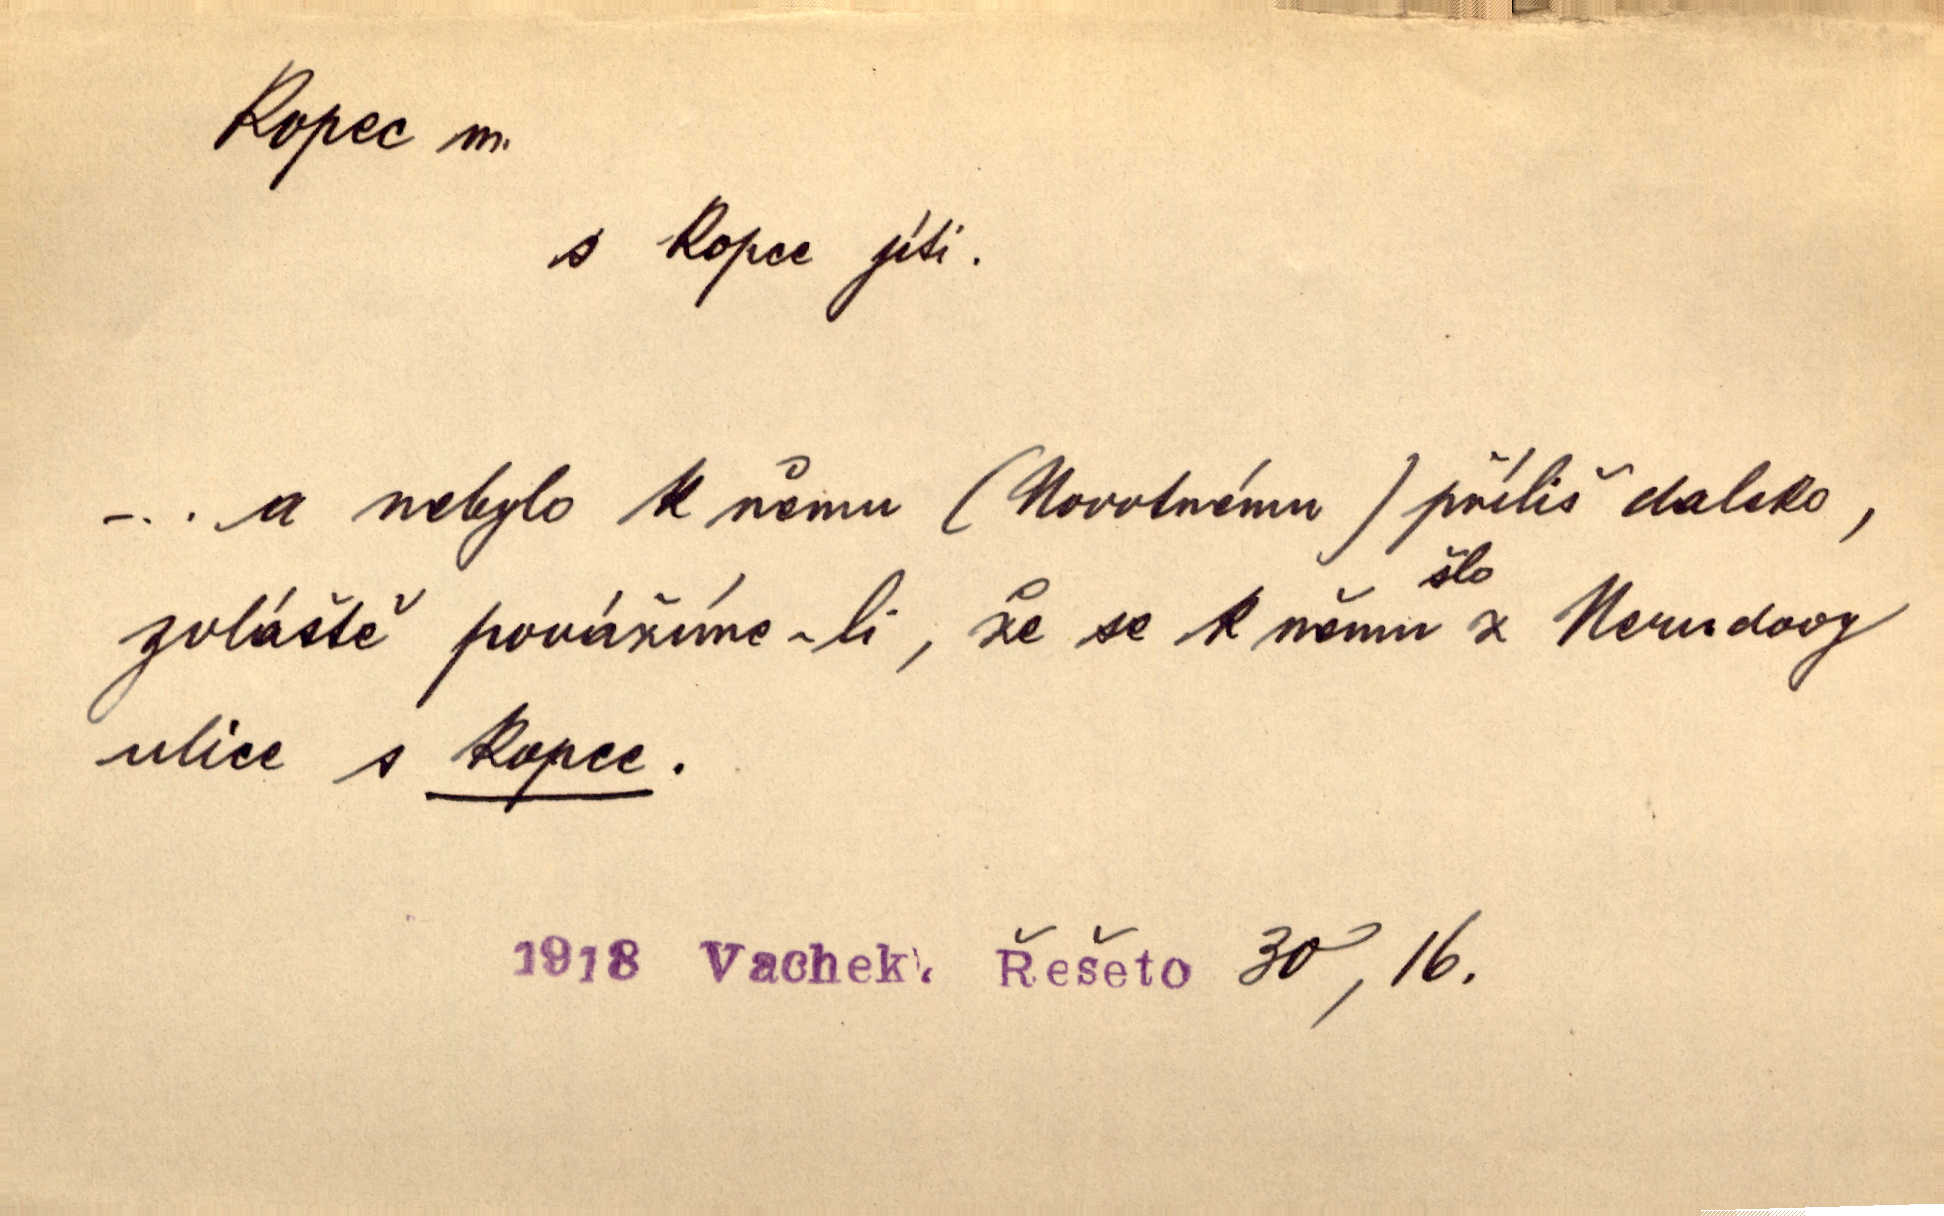 kopec m.
s kopce jíti.
... a nebylo k němu (Novotnému) příliš daleko,
šlo
zvláště povážíme-li, že se k němu z Nerudovy
ulice s kopce.
1918 Vachek. Řešeto 30, 16.